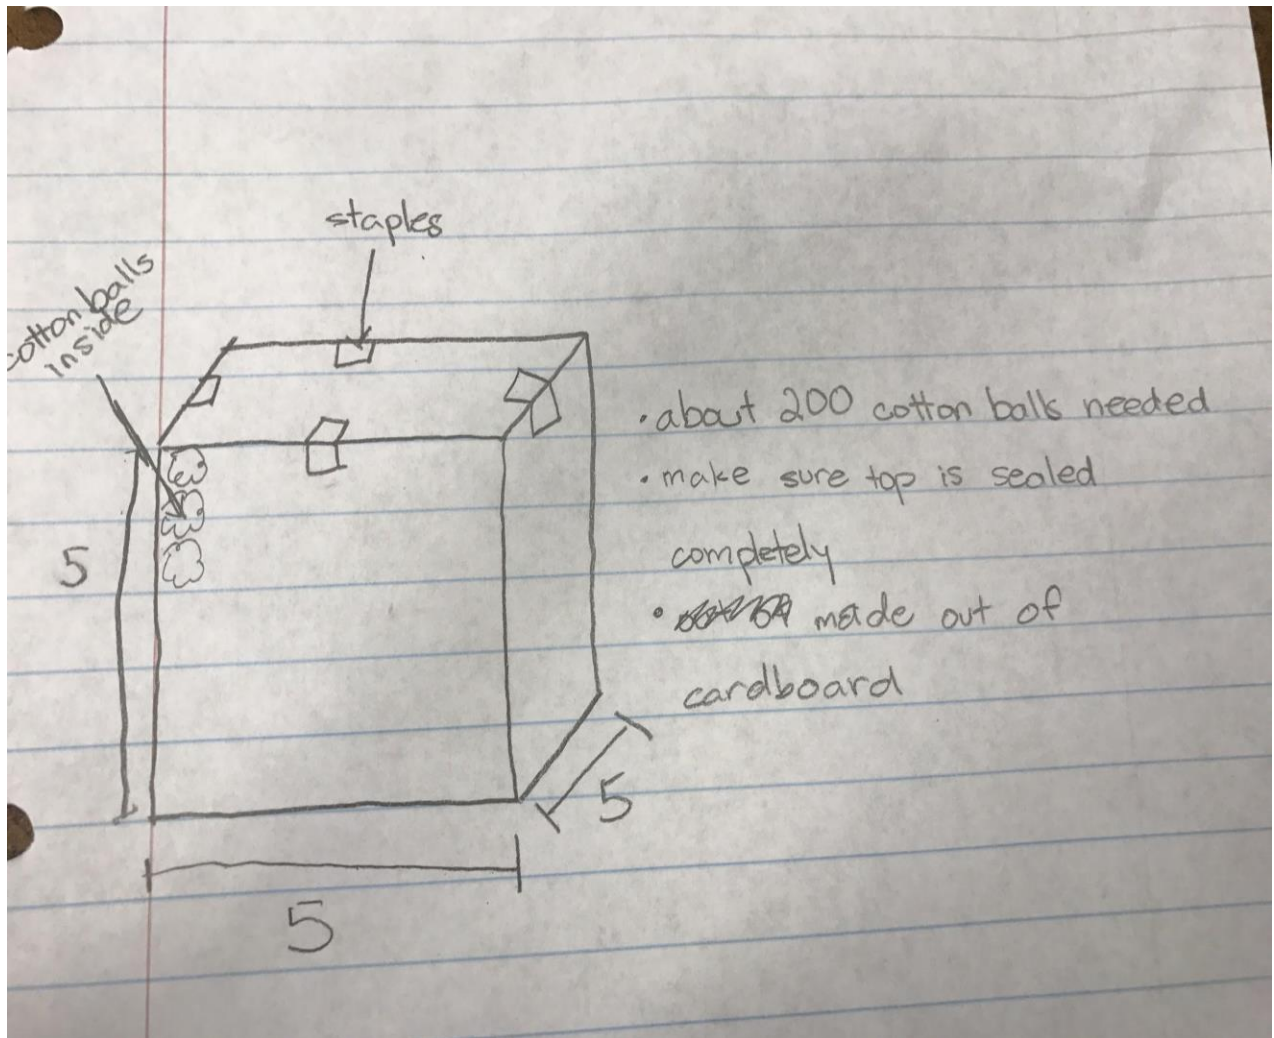 staples
cotton balls
inside
• about 200 cotton balls needed
• make sure top is sealed
completely
• made out of
cardboard
5
5
5